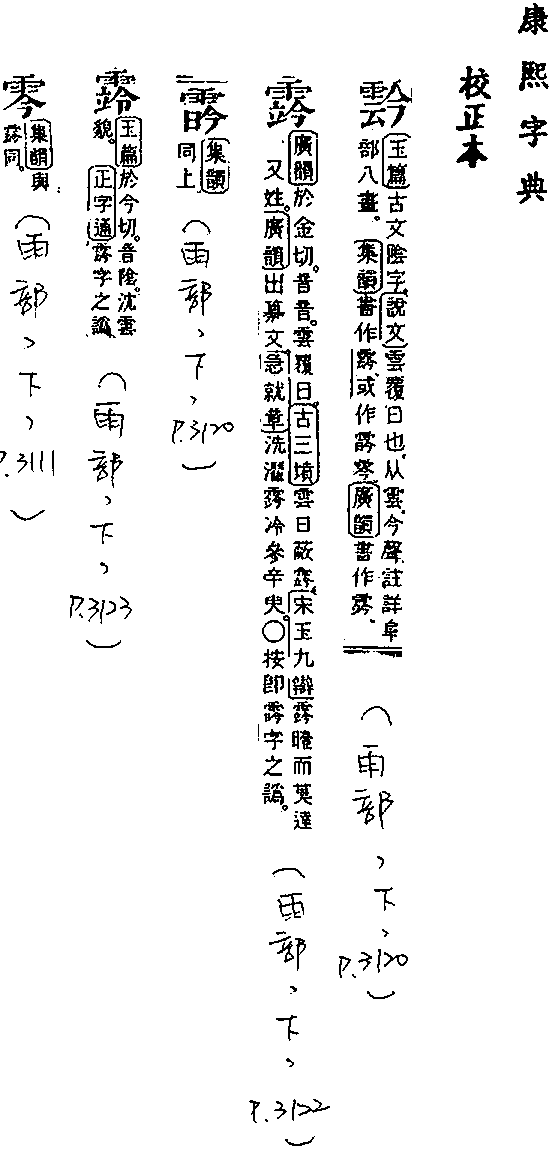 康熙字典
校正本
霒
玉篇古文陰字。說文雲覆日也。从雲今聲。註詳阜
部八畫。集韻書作霠。或作𩃬雂。廣韻書作霠。
（雨部、下、P.3120）
霠
廣韻於金切。音音。雲覆日。古三墳雲日蔽霠。宋玉九辯霠曀而莫達
又姓。廣韻出纂文。急就章洗濯霠冷參辛臾。○按卽霠字之譌。
（雨部、下、P.3122）
集韻
同上
（雨部、下、P.3120）
玉篇於今切。音陰。沈雲
貌。正字通霠字之譌
（雨部、下、P.3123）
集韻與
霠同。
（雨部、下、P.3111）